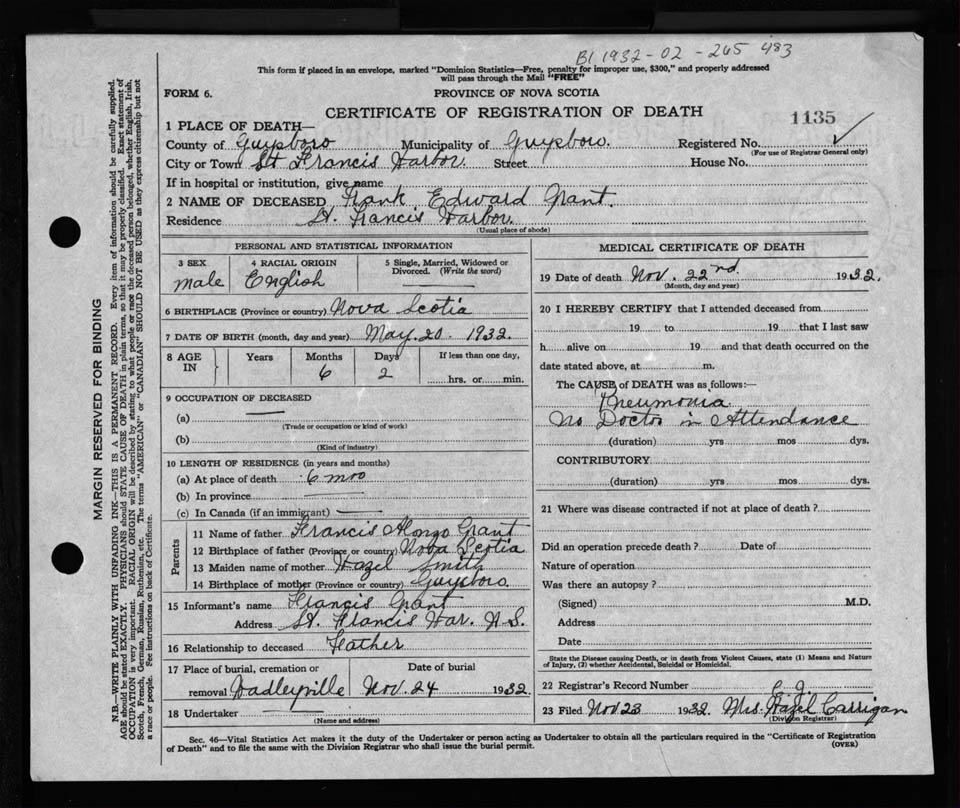 B1 1932-02-265 483
This form if placed in an envelope, marked "Dominion Statistics—Free, penalty for improper use, $300," and properly addressed
will pass through the Mail "FREE"
FORM 6. PROVINCE OF NOVA SCOTIA
CERTIFICATE OF REGISTRATION OF DEATH 1135
1 PLACE OF DEATH—
County of Guysboro Municipality of Guysboro. Registered No.
(For use of Registrar General only)
City or Town St Francis Harbor. Street House No.
If in hospital or institution, give name
2 NAME OF DECEASED Frank Edward Grant.
Residence St. Francis Harbor.
(Usual place of abode)
PERSONAL AND STATISTICAL INFORMATION
3 SEX 4 RACIAL ORIGIN 5 Single, Married, Widowed or
Divorced. (Write the word)
male English
6 BIRTHPLACE (Province or country) Nova Scotia
7 DATE OF BIRTH (month, day and year) May. 20. 1932.
8 AGE IN Years Months Days If less than one day,
6 2 hrs. or min.
9 OCCUPATION OF DECEASED
(a)
(Trade or occupation or kind of work)
(b)
(Kind of industry)
10 LENGTH OF RESIDENCE (in years and months)
(a) At place of death 6 mos
(b) In province
(c) In Canada (if an immigrant)
Parents
11 Name of father Francis Alonzo Grant
12 Birthplace of father (Province or country) Nova Scotia
13 Maiden name of mother Hazel Smith
14 Birthplace of mother (Province or country) Guysboro.
15 Informant's name Francis Grant
Address St. Francis Har. N.S.
16 Relationship to deceased Father
17 Place of burial, cremation or Date of burial
removal Hadleyville Nov. 24 1932.
18 Undertaker
(Name and address)
MEDICAL CERTIFICATE OF DEATH
19 Date of death Nov. 22nd. 1932.
(Month, day and year)
20 I HEREBY CERTIFY that I attended deceased from
19 to 19 that I last saw
h alive on 19 and that death occurred on the
date stated above, at m.
The CAUSE of DEATH was as follows:—
Pneumonia
No Doctor in Attendance
(duration) yrs mos dys.
CONTRIBUTORY
(duration) yrs mos dys.
21 Where was disease contracted if not at place of death?
Did an operation precede death? Date of
Nature of operation
Was there an autopsy?
(Signed) M.D.
Address
Date
State the Disease causing Death, or in death from Violent Causes, state (1) Means and Nature
of Injury, (2) whether Accidental, Suicidal or Homicidal.
22 Registrar's Record Number
23 Filed Nov 23 1932 Mrs. Hazel Carrigan
(Division Registrar)
Sec. 46—Vital Statistics Act makes it the duty of the Undertaker or person acting as Undertaker to obtain all the particulars required in the "Certificate of Registration
of Death" and to file the same with the Division Registrar who shall issue the burial permit. (OVER)
MARGIN RESERVED FOR BINDING
N.B.—WRITE PLAINLY WITH UNFADING INK—THIS IS A PERMANENT RECORD. Every item of information should be carefully supplied.
AGE should be stated EXACTLY. PHYSICIANS should STATE CAUSE OF DEATH in plain terms, so that it may be properly classified. Exact statement of
OCCUPATION is very important. RACIAL ORIGIN will be described by stating to what people or race the deceased person belonged, whether English, Irish,
Scotch, French, German, Russian, Ruthenian, etc. The terms "AMERICAN" or "CANADIAN" SHOULD NOT BE USED as they express citizenship but not
a race or people. See instructions on back of Certificate.